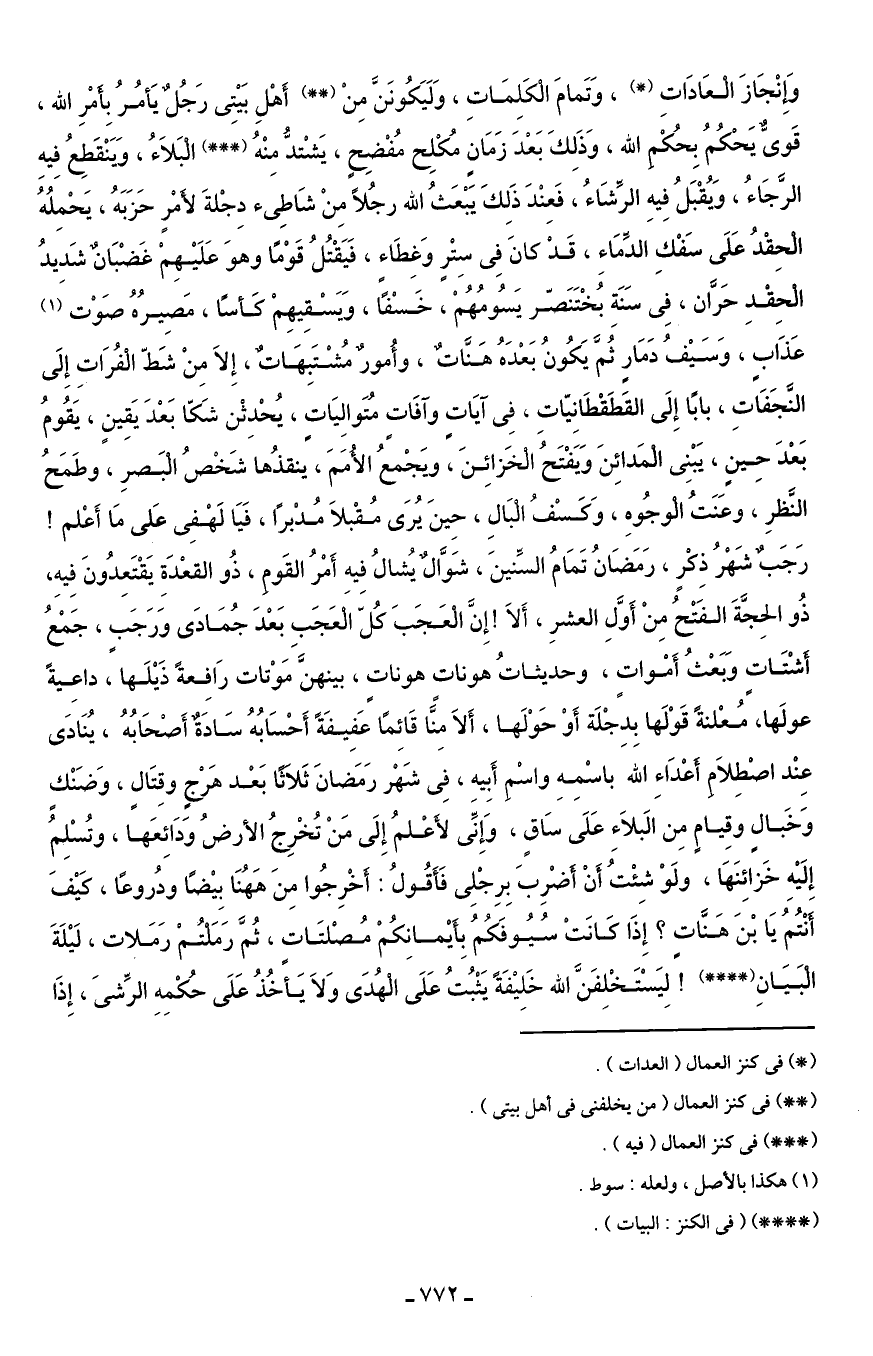 وَإِنْجَازَ الْعَادَاتِ (*) ، وَتَمامَ الْكَلِمَاتِ ، وَلَيَكُونَنَّ مِنْ (**) أَهْلِ بَيْتِى رَجُلٌ يَأمُرُ بِأَمْرِ الله ،
قَوِىٌّ يَحْكُمُ بِحُكْمِ الله ، وَذَلِكَ بَعْدَ زَمَانٍ مُكْلِحٍ مُفْضِحٍ ، يَشْتدُّ مِنْهُ (***) الْبَلاَءُ ، وَيَنْقَطِعُ فيه
الرَّجَاءُ ، وَيُقْبَلُ فيه الرِّشَاءُ ، فَعِنْدَ ذَلِكَ يَبْعَثُ الله رجُلاً مِنْ شَاطِىء دِجْلة لأَمْرٍ حَزَبَهُ ، يَحْمِلُهُ
الْحِقْدُ عَلَى سَفْكِ الدِّمَاءِ ، قَدْ كانَ فِى ستْرٍ وَغِطَاءٍ ، فَيَقْتُلُ قَوْمًا وهوَ عَلَيْهِمْ غَضْبَانٌ شديدُ
الْحِقْدِ حَرَّان ، فِى سَنَةِ بُخْتَنَصّر يَسُومُهُمْ ، خَسْفًا ، وَيَسْقِيهِمْ كَأسًا ، مَصيرُهُ صَوْت (١)
عَذَابٍ ، وَسَيْفُ دَمَارٍ ثُمَّ يَكُونُ بَعْدَهُ هَنَّاتٌ ، وأُمورٌ مُشْتَبِهَاتٌ ، إلاَ مِنْ شَطّ الْفُرَاتِ إلَى
النَّجَفَاتِ ، بابًا إلَى القَطقْطانِيّاتِ ، فى آيَاتٍ وآفَاتٍ مُتَوالِيَاتٍ ، يُحْدِثْن شَكّا بَعْدَ يَقينٍ ، يَقُومُ
بَعْدَ حِينٍ ، يَبْنِى الْمَدائنَ وَيَفْتَحُ الْخَزائنَ ، ويَجْمعُ الأُمَمَ ، ينقذُها شَخْصُ الْبَصرِ ، وطَمَحُ
النَّظرِ ، وعَنَتُ الْوجُوه ، وَكَسْفُ الْبَالِ ، حينَ يُرَى مُقْبلاً مُدْبرًا ، فَيَا لَهْفِى عَلَى مَا أعْلم !
رَجَبٌ شَهْرُ ذِكْرٍ ، رَمَضَانُ تَمَامُ السِّنينَ ، شَوَّالٌ يُشالُ فيه أَمْرُ القَومِ ، ذُو القعْدَة يَقْتَعدُونَ فيه،
ذُو الحِجَّةِ الْفَتْحُ مِنْ أَوَّلِ العشرِ ، أَلاَ !إِنَّ الْعَجَبَ كُلّ الْعَجَب بَعْدَ جُمَادَى وَرَجَبٍ ، جَمْعُ
أَشْتَاتٍ وَبَعْثُ أَمْوات ، وحديثاتُ هونات هونات ، بينهنَّ مَوْتات رَافِعةً ذَيْلَها ، داعيةً
عولها، مُعْلنةً قَوْلَها بِدجْلَة أَوْ حَوْلَها ، أَلاَ مِنَّا قَائمًا عَفيفَةً أحْسَابُهُ سَادَةٌ أَصْحَابُهُ ، يُنَادَى
عِنْد اصْطِلاَمِ أَعْدَاءِ الله باسْمه واسْم أبيه ، فِى شَهْر رَمَضانَ ثَلاَثًا بَعْد هَرْجٍ وقِتَالٍ ، وضَنْك
وَخَبالٍ وقيامٍ مِن الْبَلاَءِ عَلَى ساقٍ ، وَإِنِّى لأَعْلمُ إِلَى مَنْ تُخْرِجُ الأرضُ وَدَائعَها ، وتُسْلِمُ
إِلَيْهِ خَزائنَهَا ، ولَوْ شئْتُ أَنْ أَضْرِبَ بِرجْلى فَأَقُولُ : أَخْرِجُوا مِنَ هَهُنَا بيْضًا ودُروعًا ، كَيْفَ
أَنْتُمُ يَا بْنَ هَنَّاتٍ ؟ إذَا كَانَتْ سُيُوفَكُمُ بأَيْمانِكُمْ مُصلَتَاتٍ ، ثُمَّ رَمَلتُمْ رَمَلات ، لَيْلَةَ
الْبَيَانِ (****) ! لِيَسْتَخْلفَنَّ الله خَلِيفَةً يَثْبُتُ عَلَى الْهُدَى وَلاَ يَأخُذُ عَلَى حُكْمِهِ الرِّشىَ ، إِذَا
(*) فى كنز العمال ( العدات ) .
(**) فى كنز العمال ( من يخلفنى فى أهل بيتى ) .
(***) فى كنز العمال ( فيه ) .
(١) هكذا بالأصل ، ولعله : سوط .
(****) ( فى الكنز : البيات ) .
ـ ٧٧٢ ـ